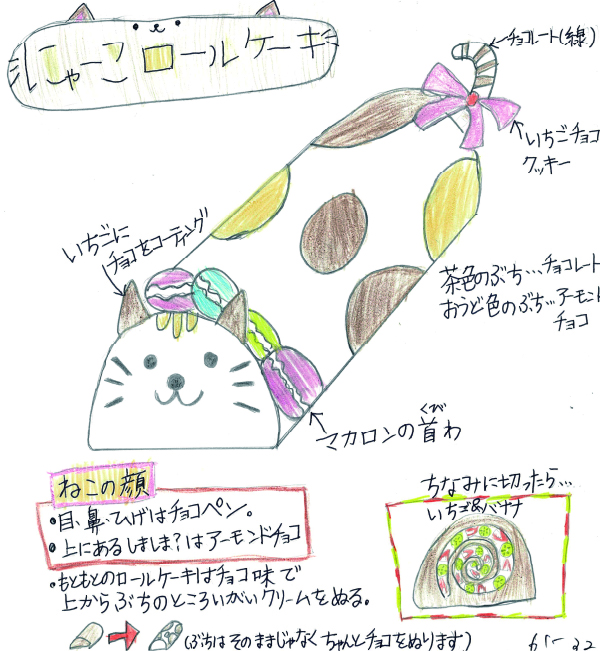 にゃーこロールケーキ
チョコレート(線)
いちごチョコ
クッキー
いちごに
チョコをコーティング
茶色のぶち…チョコレート
おうど色のぶち…アーモンド
チョコ
マカロンの首わ
くび
ねこの顔
・目、鼻、ひげはチョコペン。
・上にあるしましま?はアーモンドチョコ
・もともとのロールケーキはチョコ味で
上からぶちのところいがいクリームをぬる。
(ぶちはそのままじゃなくちゃんとチョコをぬります)
ちなみに切ったら…
いちご&バナナ